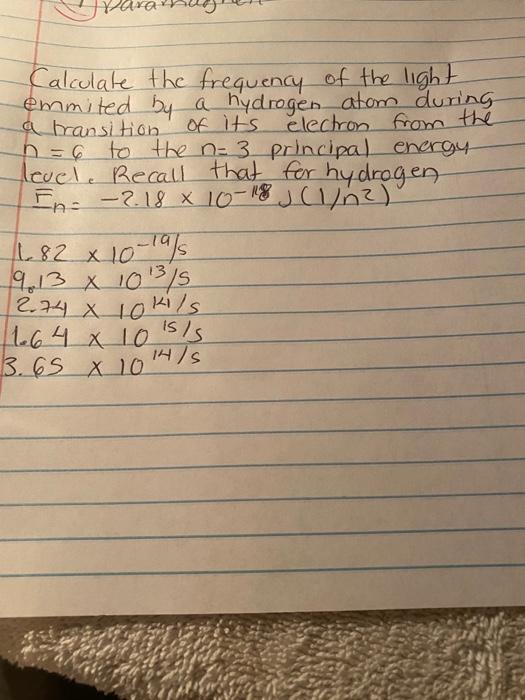 Calculate the frequency of the light
emmited by a hydrogen atom during
a transition of its electron from the
n = 6 to the n = 3 principal energy
level. Recall that for hydrogen
En = -2.18 × 10⁻¹⁸ J (1/n²)
1.82 × 10⁻¹⁹/s
9.13 × 10¹³/s
2.74 × 10¹⁴/s
1.64 × 10¹⁵/s
3.65 × 10¹⁴/s